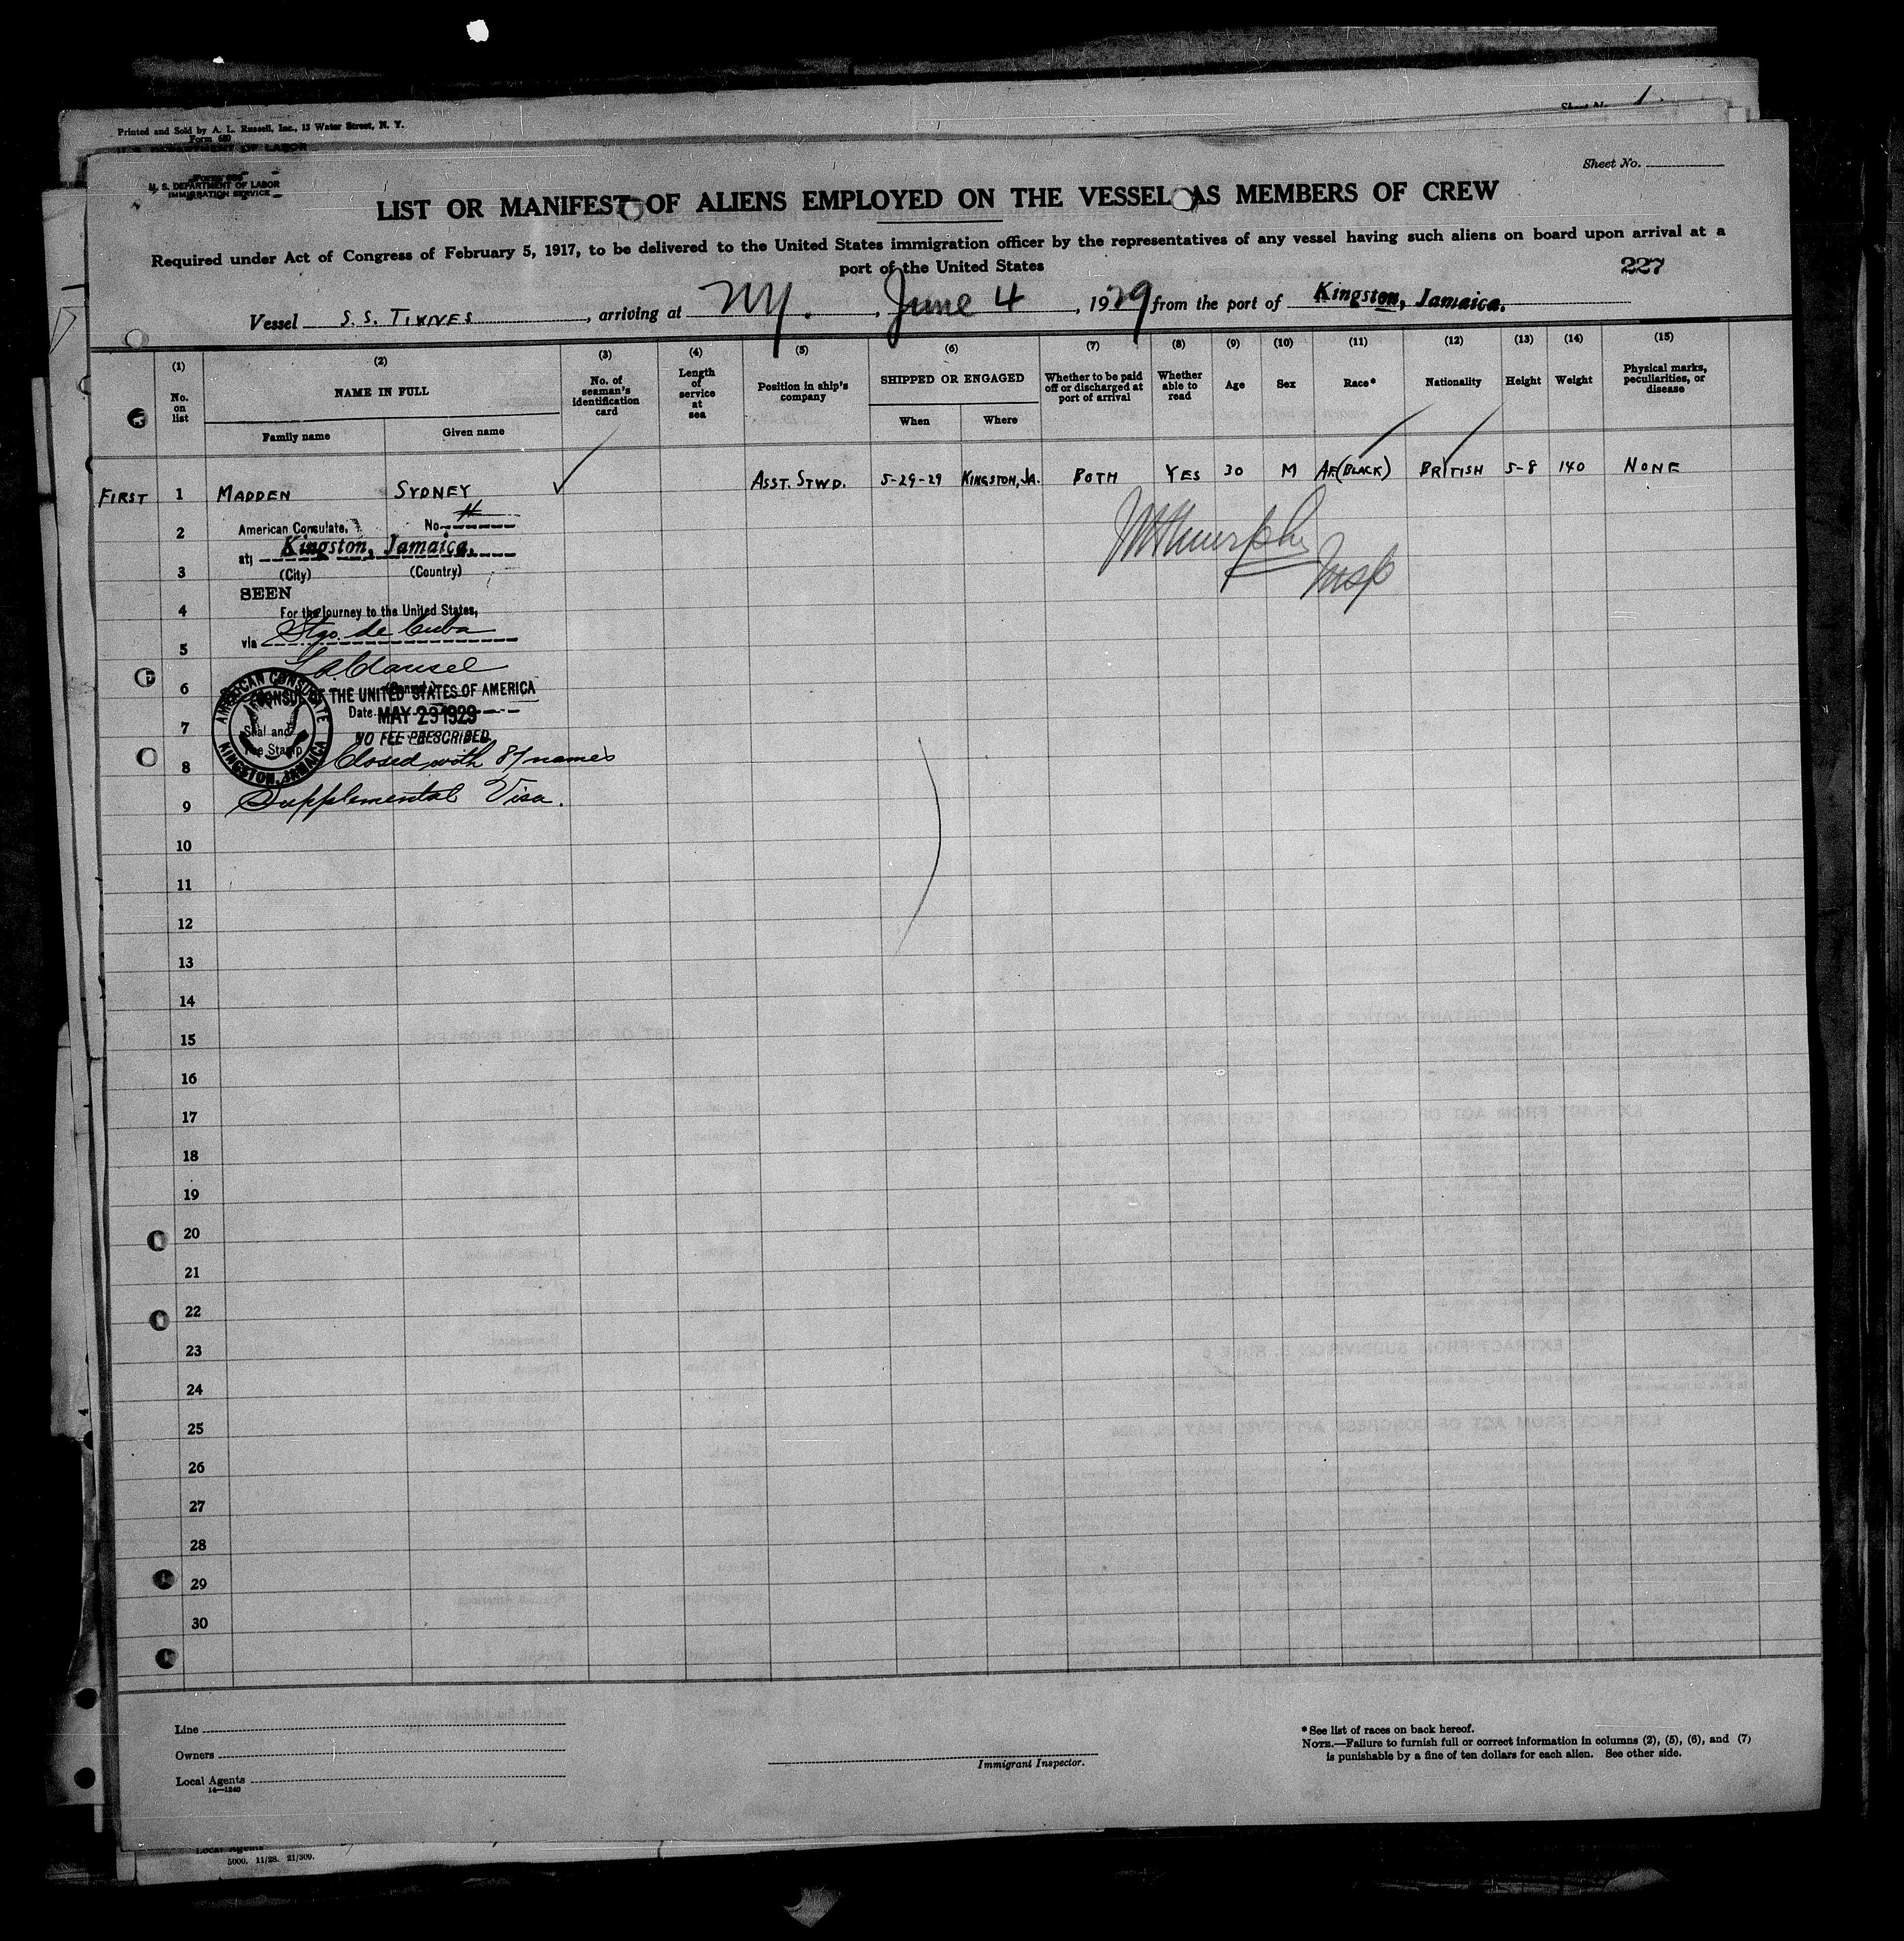 Printed and Sold by A. L. Russell, Inc., 13 Water Street, N. Y.
Form 680
U. S. DEPARTMENT OF LABOR
Sheet No. 1
U. S. DEPARTMENT OF LABOR
IMMIGRATION SERVICE
Sheet No.
LIST OR MANIFEST OF ALIENS EMPLOYED ON THE VESSEL AS MEMBERS OF CREW
Required under Act of Congress of February 5, 1917, to be delivered to the United States immigration officer by the representatives of any vessel having such aliens on board upon arrival at a
port of the United States
227
Vessel S. S. TIVIVES, arriving at NY., June 4, 1929 from the port of Kingston, Jamaica.
(1) (2) (3) (4) (5) (6) (7) (8) (9) (10) (11) (12) (13) (14) (15)
No. on list
NAME IN FULL
Family name
Given name
No. of seaman's identification card
Length of service at sea
Position in ship's company
SHIPPED OR ENGAGED
When
Where
Whether to be paid off or discharged at port of arrival
Whether able to read
Age
Sex
Race*
Nationality
Height
Weight
Physical marks, peculiarities, or disease
FIRST 1 MADDEN SYDNEY ✓ ASST. STWD. 5-29-29 KINGSTON, JA. BOTH YES 30 M AF.(BLACK) BRITISH 5-8 140 NONE
2
American Consulate, No.
at Kingston, Jamaica.
3
(City) (Country)
SEEN
4
For the Journey to the United States,
via Stgo. de Cuba
5
6
CONSUL OF THE UNITED STATES OF AMERICA
Date MAY 29 1929
7
AMERICAN CONSULATE
KINGSTON, JAMAICA
Seal and
Fee Stamp
NO FEE PRESCRIBED
8
Closed with 87 names
9
Supplemental Visa.
10
11
12
13
14
15
16
17
18
19
20
21
22
23
24
25
26
27
28
29
30
Line
Owners
Local Agents
14—1240
Immigrant Inspector.
* See list of races on back hereof.
NOTE.—Failure to furnish full or correct information in columns (2), (5), (6), and (7)
is punishable by a fine of ten dollars for each alien. See other side.
Local Agents
5000. 11/28. 21/309.